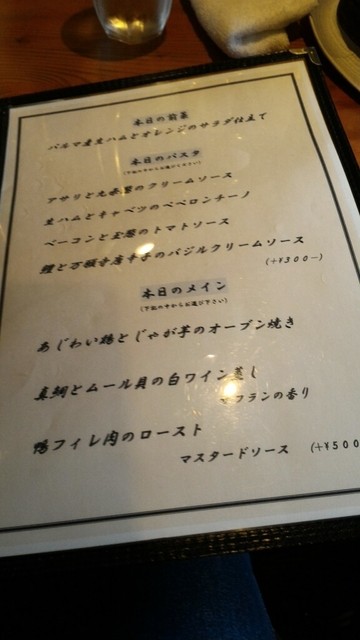 本日の前菜
パルマ産生ハムとオレンジのサラダ仕立て
本日のパスタ
(下記の中からお選び下さい)
アサリと九条葱のクリームソース
生ハムとキャベツのペペロンチーノ
ベーコンと玉葱のトマトソース
と万願寺唐辛子のバジルクリームソース
(+¥300-)
本日のメイン
(下記の中からお選び下さい)
あじわい鶏とじゃが芋のオーブン焼き
真鯛とムール貝の白ワイン蒸し
サフランの香り
鴨フィレ肉のロースト
マスタードソース (+¥500